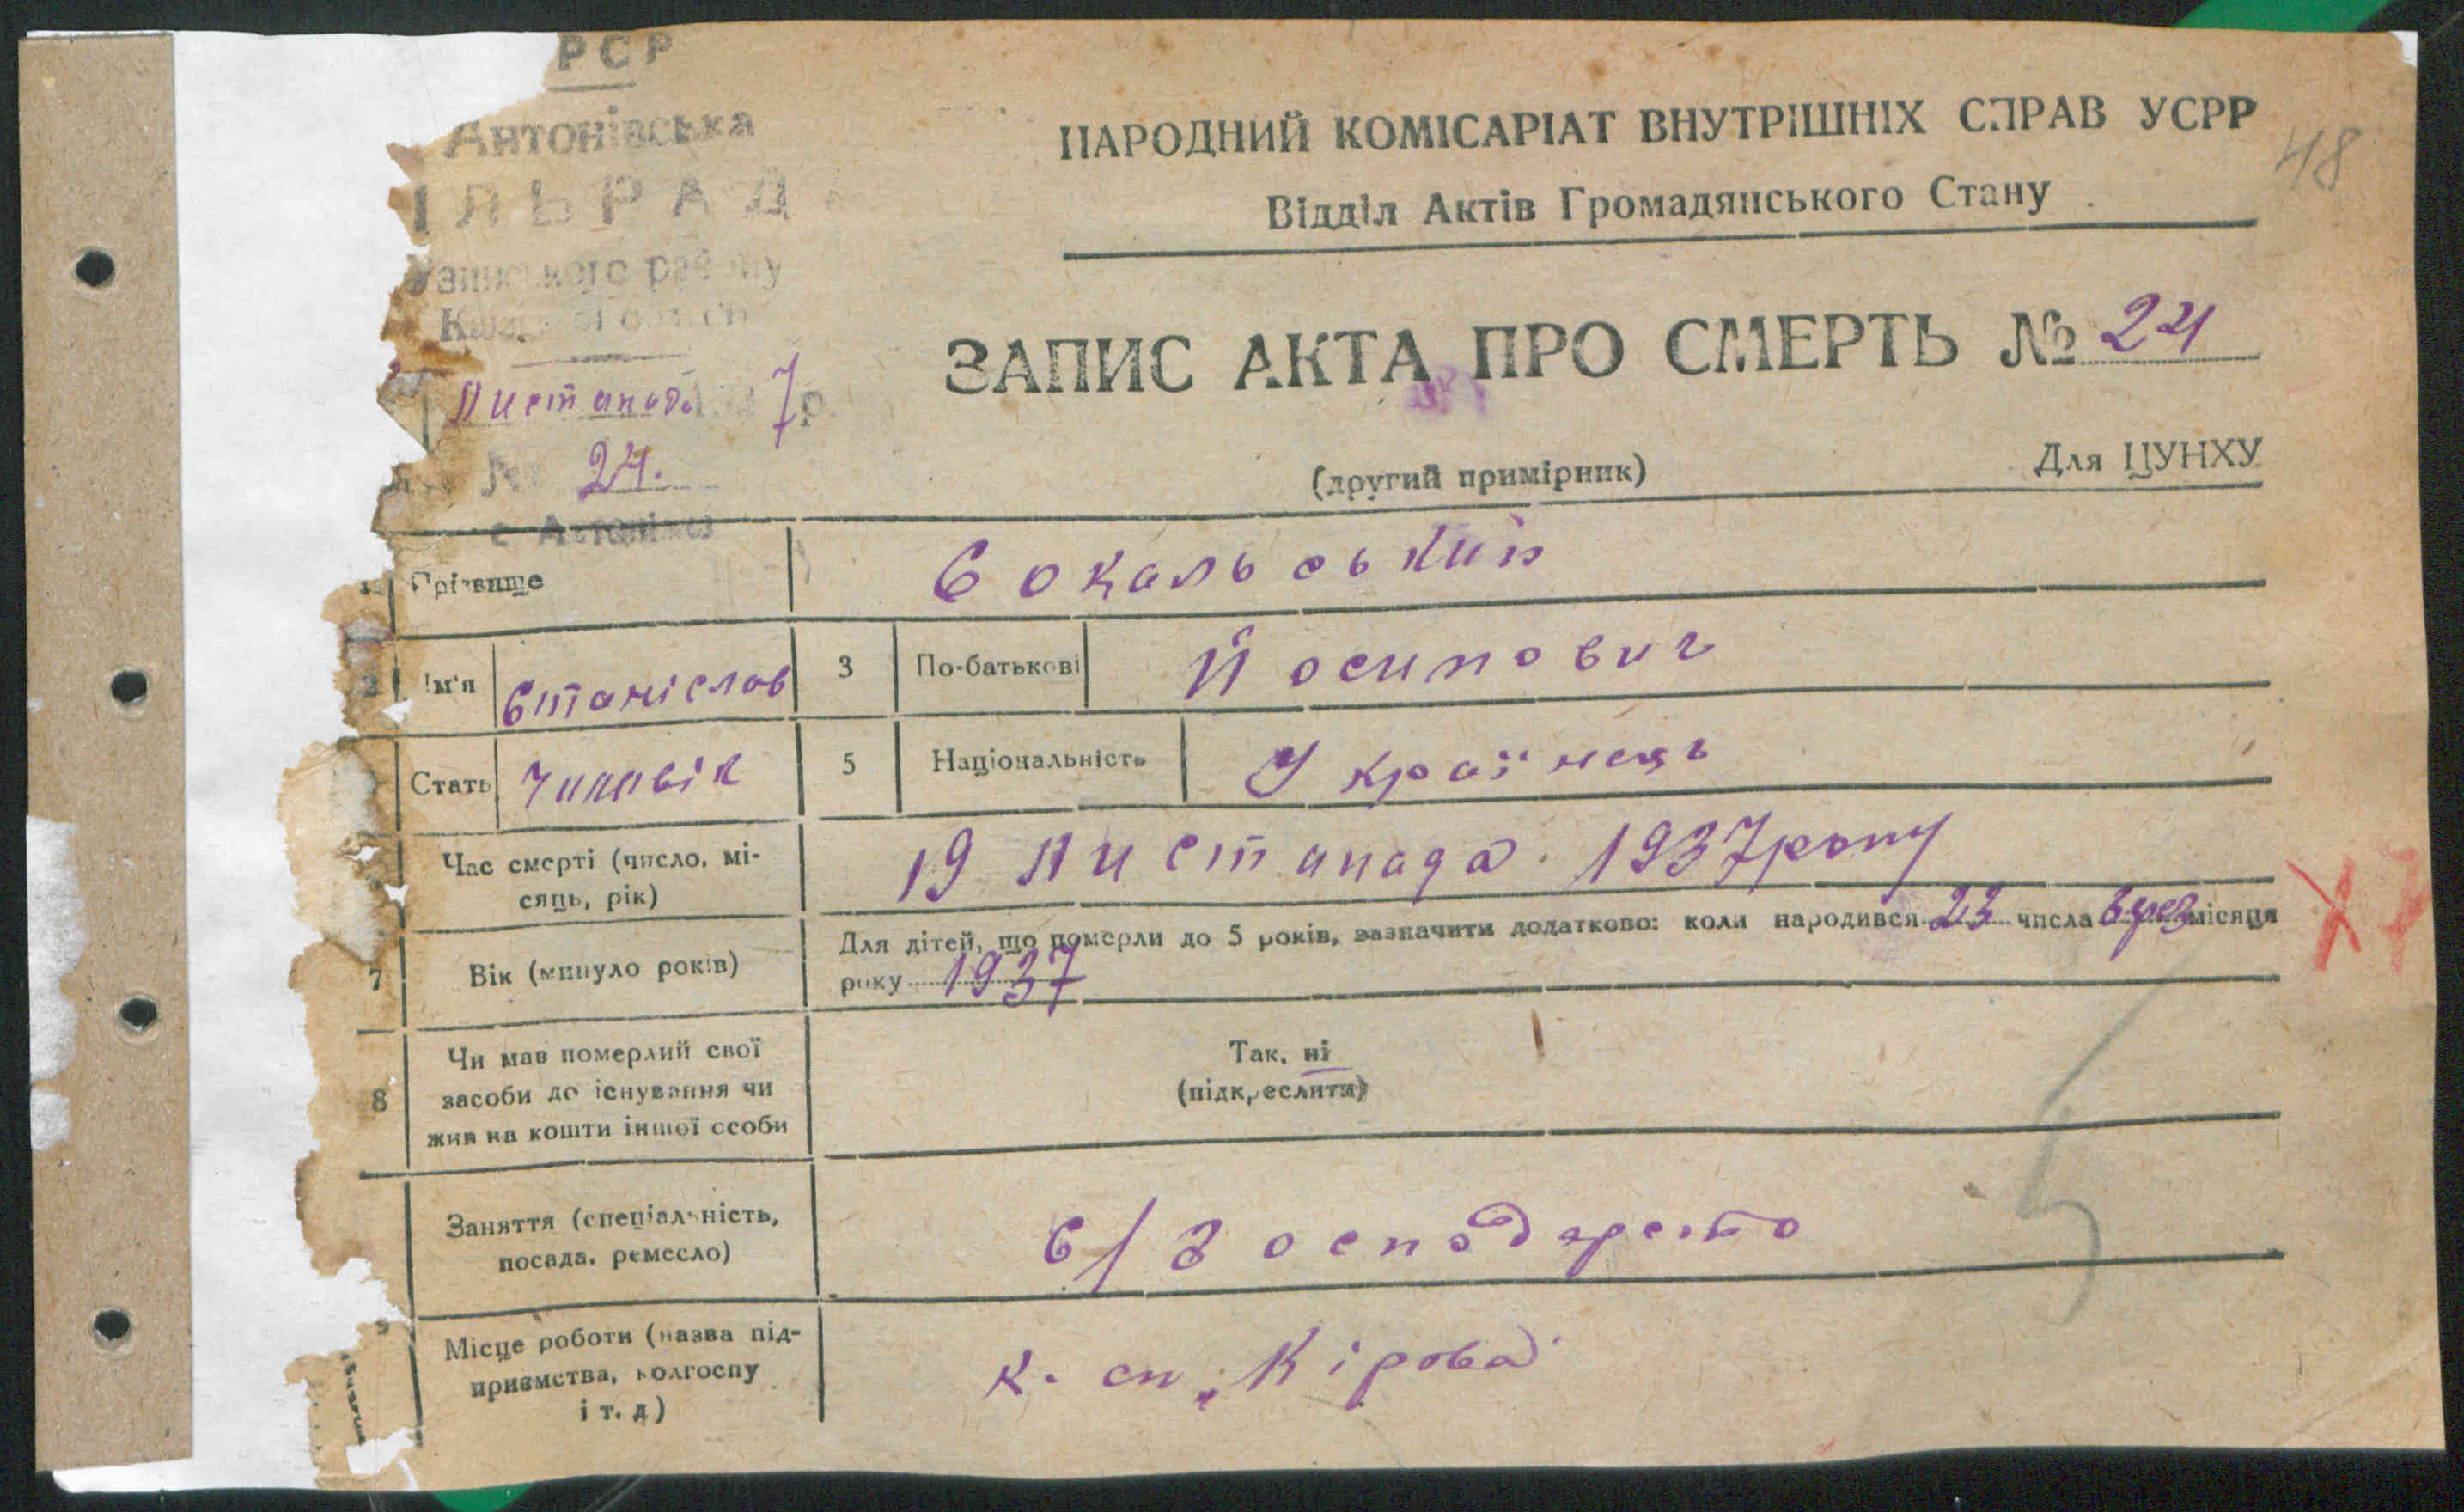 РСР
Антонівська
ІЛЬРАД
Узинського району
НАРОДНИЙ КОМІСАРІАТ ВНУТРІШНІХ СПРАВ УСРР
48
Відділ Актів Громадянського Стану
ЗАПИС АКТА ПРО СМЕРТЬ № 24
Листапада 7р.
№ 24.
(другий примірник)
Для ЦУНХУ
с Антонівка
1 Прізвище Сокальський
2 Ім'я Станіслав 3 По-батькові Йосипович
Стать Чиловік 5 Національність Українець
Час смерті (число, мі-
сяць, рік)
19 Листапада. 1937 року
7 Вік (минуло років)
Для дітей, що померли до 5 років, зазначити додатково: коли народився 23 числа берез місяця
року 1937
8 Чи мав померлий свої
засоби до існування чи
жив на кошти іншої особи
Так, ні
(підкреслити)
Заняття (спеціальність,
посада, ремесло)
с/Господарство
9 Місце роботи (назва під-
приємства, колгоспу
і т. д)
к. сп. Кірова